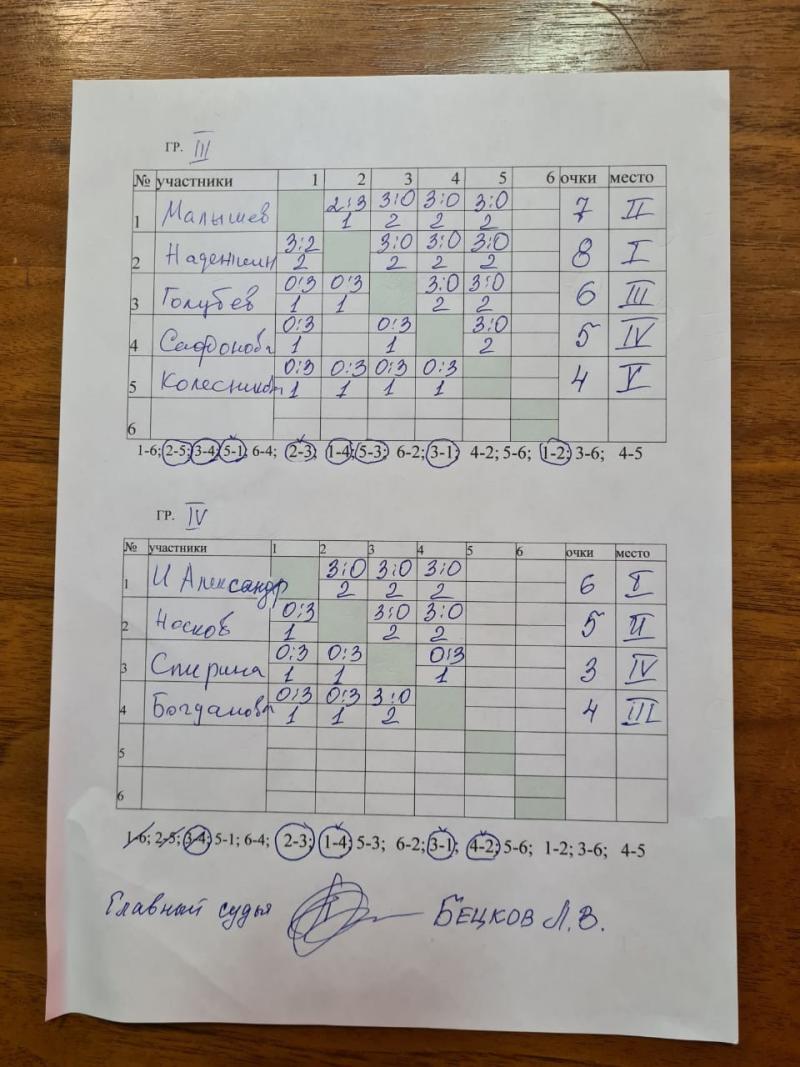 ГР. III
№ участники 1 2 3 4 5 6 очки место
1 Малышев 2:3 3:0 3:0 3:0 7 II
1 2 2 2
2 Надежкин 3:2 3:0 3:0 3:0 8 I
2 2 2 2
3 Голубев 0:3 0:3 3:0 3:0 6 III
1 1 2 2
4 Сафонова 0:3 0:3 3:0 5 IV
1 1 2
5 Колесников 0:3 0:3 0:3 0:3 4 V
1 1 1 1
6
1-6; 2-5; 3-4; 5-1; 6-4; 2-3; 1-4; 5-3; 6-2; 3-1; 4-2; 5-6; 1-2; 3-6; 4-5
ГР. IV
№ участники 1 2 3 4 5 6 очки место
1 И Александр 3:0 3:0 3:0 6 I
2 2 2
2 Носков 0:3 3:0 3:0 5 II
1 2 2
3 Спирина 0:3 0:3 0:3 3 IV
1 1 1
4 Богданова 0:3 0:3 3:0 4 III
1 1 2
5
6
1-6; 2-5; 3-4; 5-1; 6-4; 2-3; 1-4; 5-3; 6-2; 3-1; 4-2; 5-6; 1-2; 3-6; 4-5
Главный судья БЕЦКОВ Л.В.